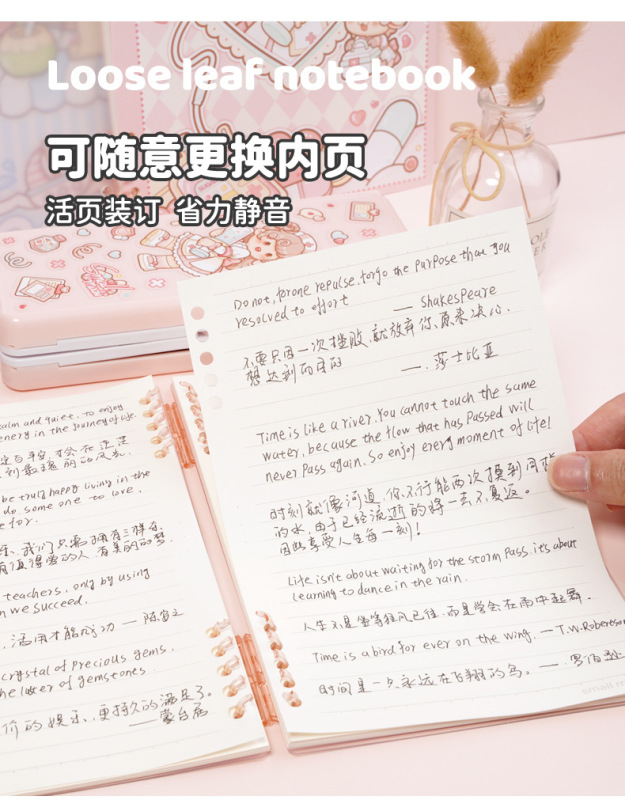 Loose leaf notebook
可随意更换内页
活页装订 省力静音
Do not, for one repulse, forgo the purpose that you
resolved to effort
— Shakespeare
不要只因一次挫败,就放弃你原来决心
想达到的目的
—.莎士比亚
Time is like a river. You cannot touch the same
water, because the flow that has passed will
never pass again. So enjoy every moment of life!
时刻就像河道,你不行能两次摸到同
的水,由于已经流逝的将一去不复返。
因此享受人生每一刻!
Life isn't about waiting for the storm pass. it's about
learning to dance in the rain.
人生不是坐等狂风已往,而是学会在雨中起舞。
Time is a bird for ever on the wing. — T.W.Roberteson
时间是一只永远在飞翔的鸟。—.罗伯逊
calm and quiet, to enjoy
energy in the journey of life.
be truly happy living in the
do some one to love,
for.
我们只需拥有三样
有值得爱的人,有美丽的梦.
teachers, only by using
we succeed.
活用才能成功 —
crystal of precious gems,
the luster of gemstones
价的娱乐,更持久的满足了。
— 蒙台居